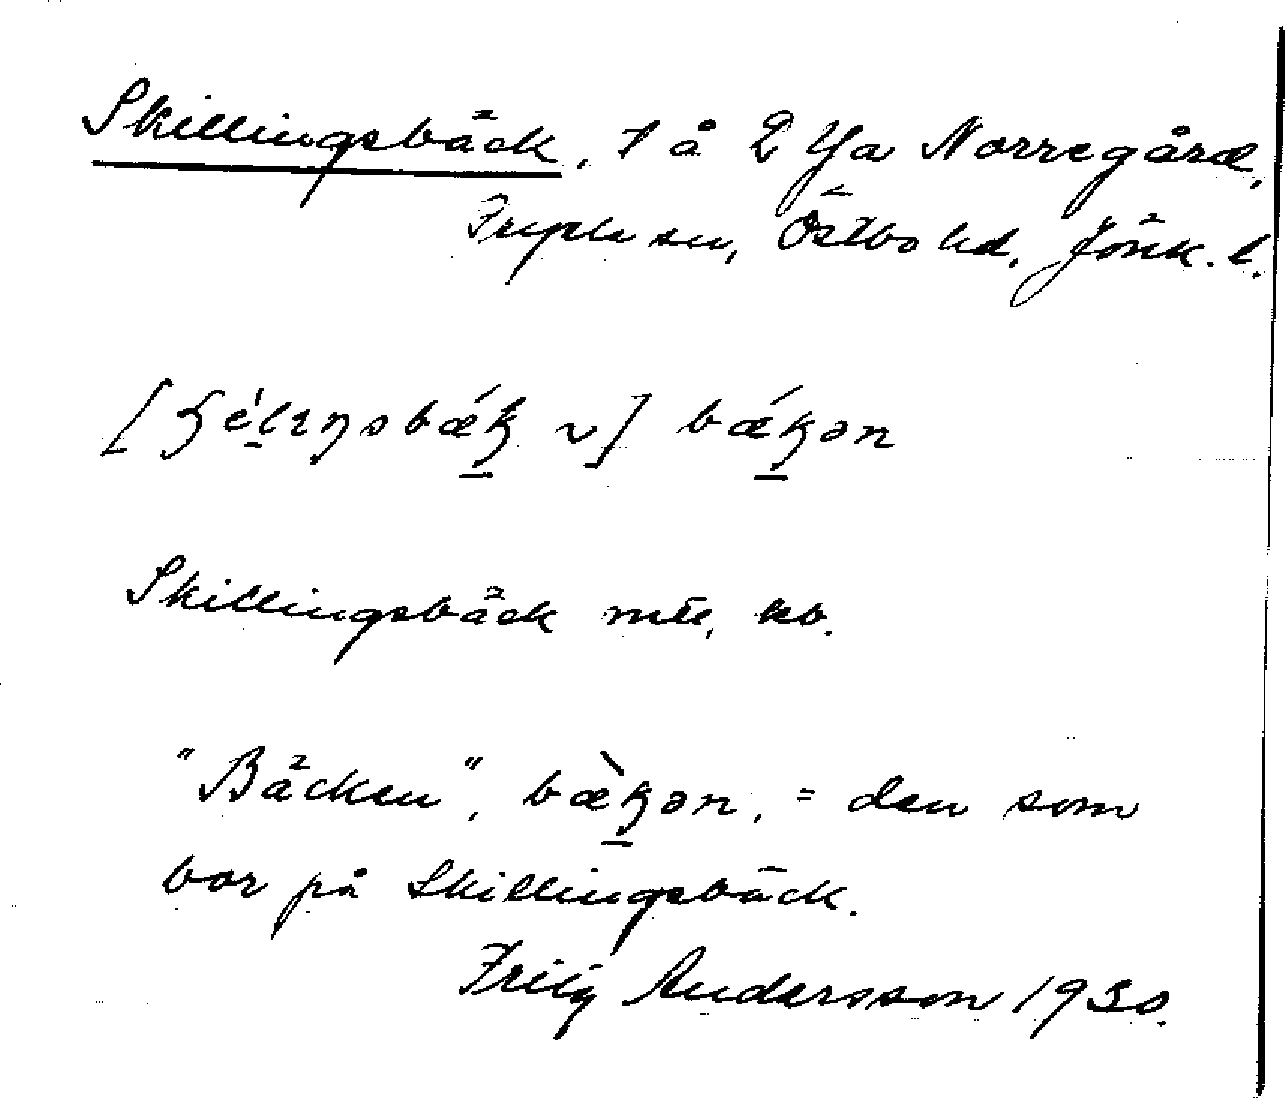 Skillingsbäck, 1 å 2 Ya Norregård,
sn, Östbo hd. Jönk. l.
bǽꞣən
Skillingsbäck mtl, kb.
"Bäcken", bæ̀ꞣən, = den som
bor på Skillingsbäck.
Fritz Andersson 1930.